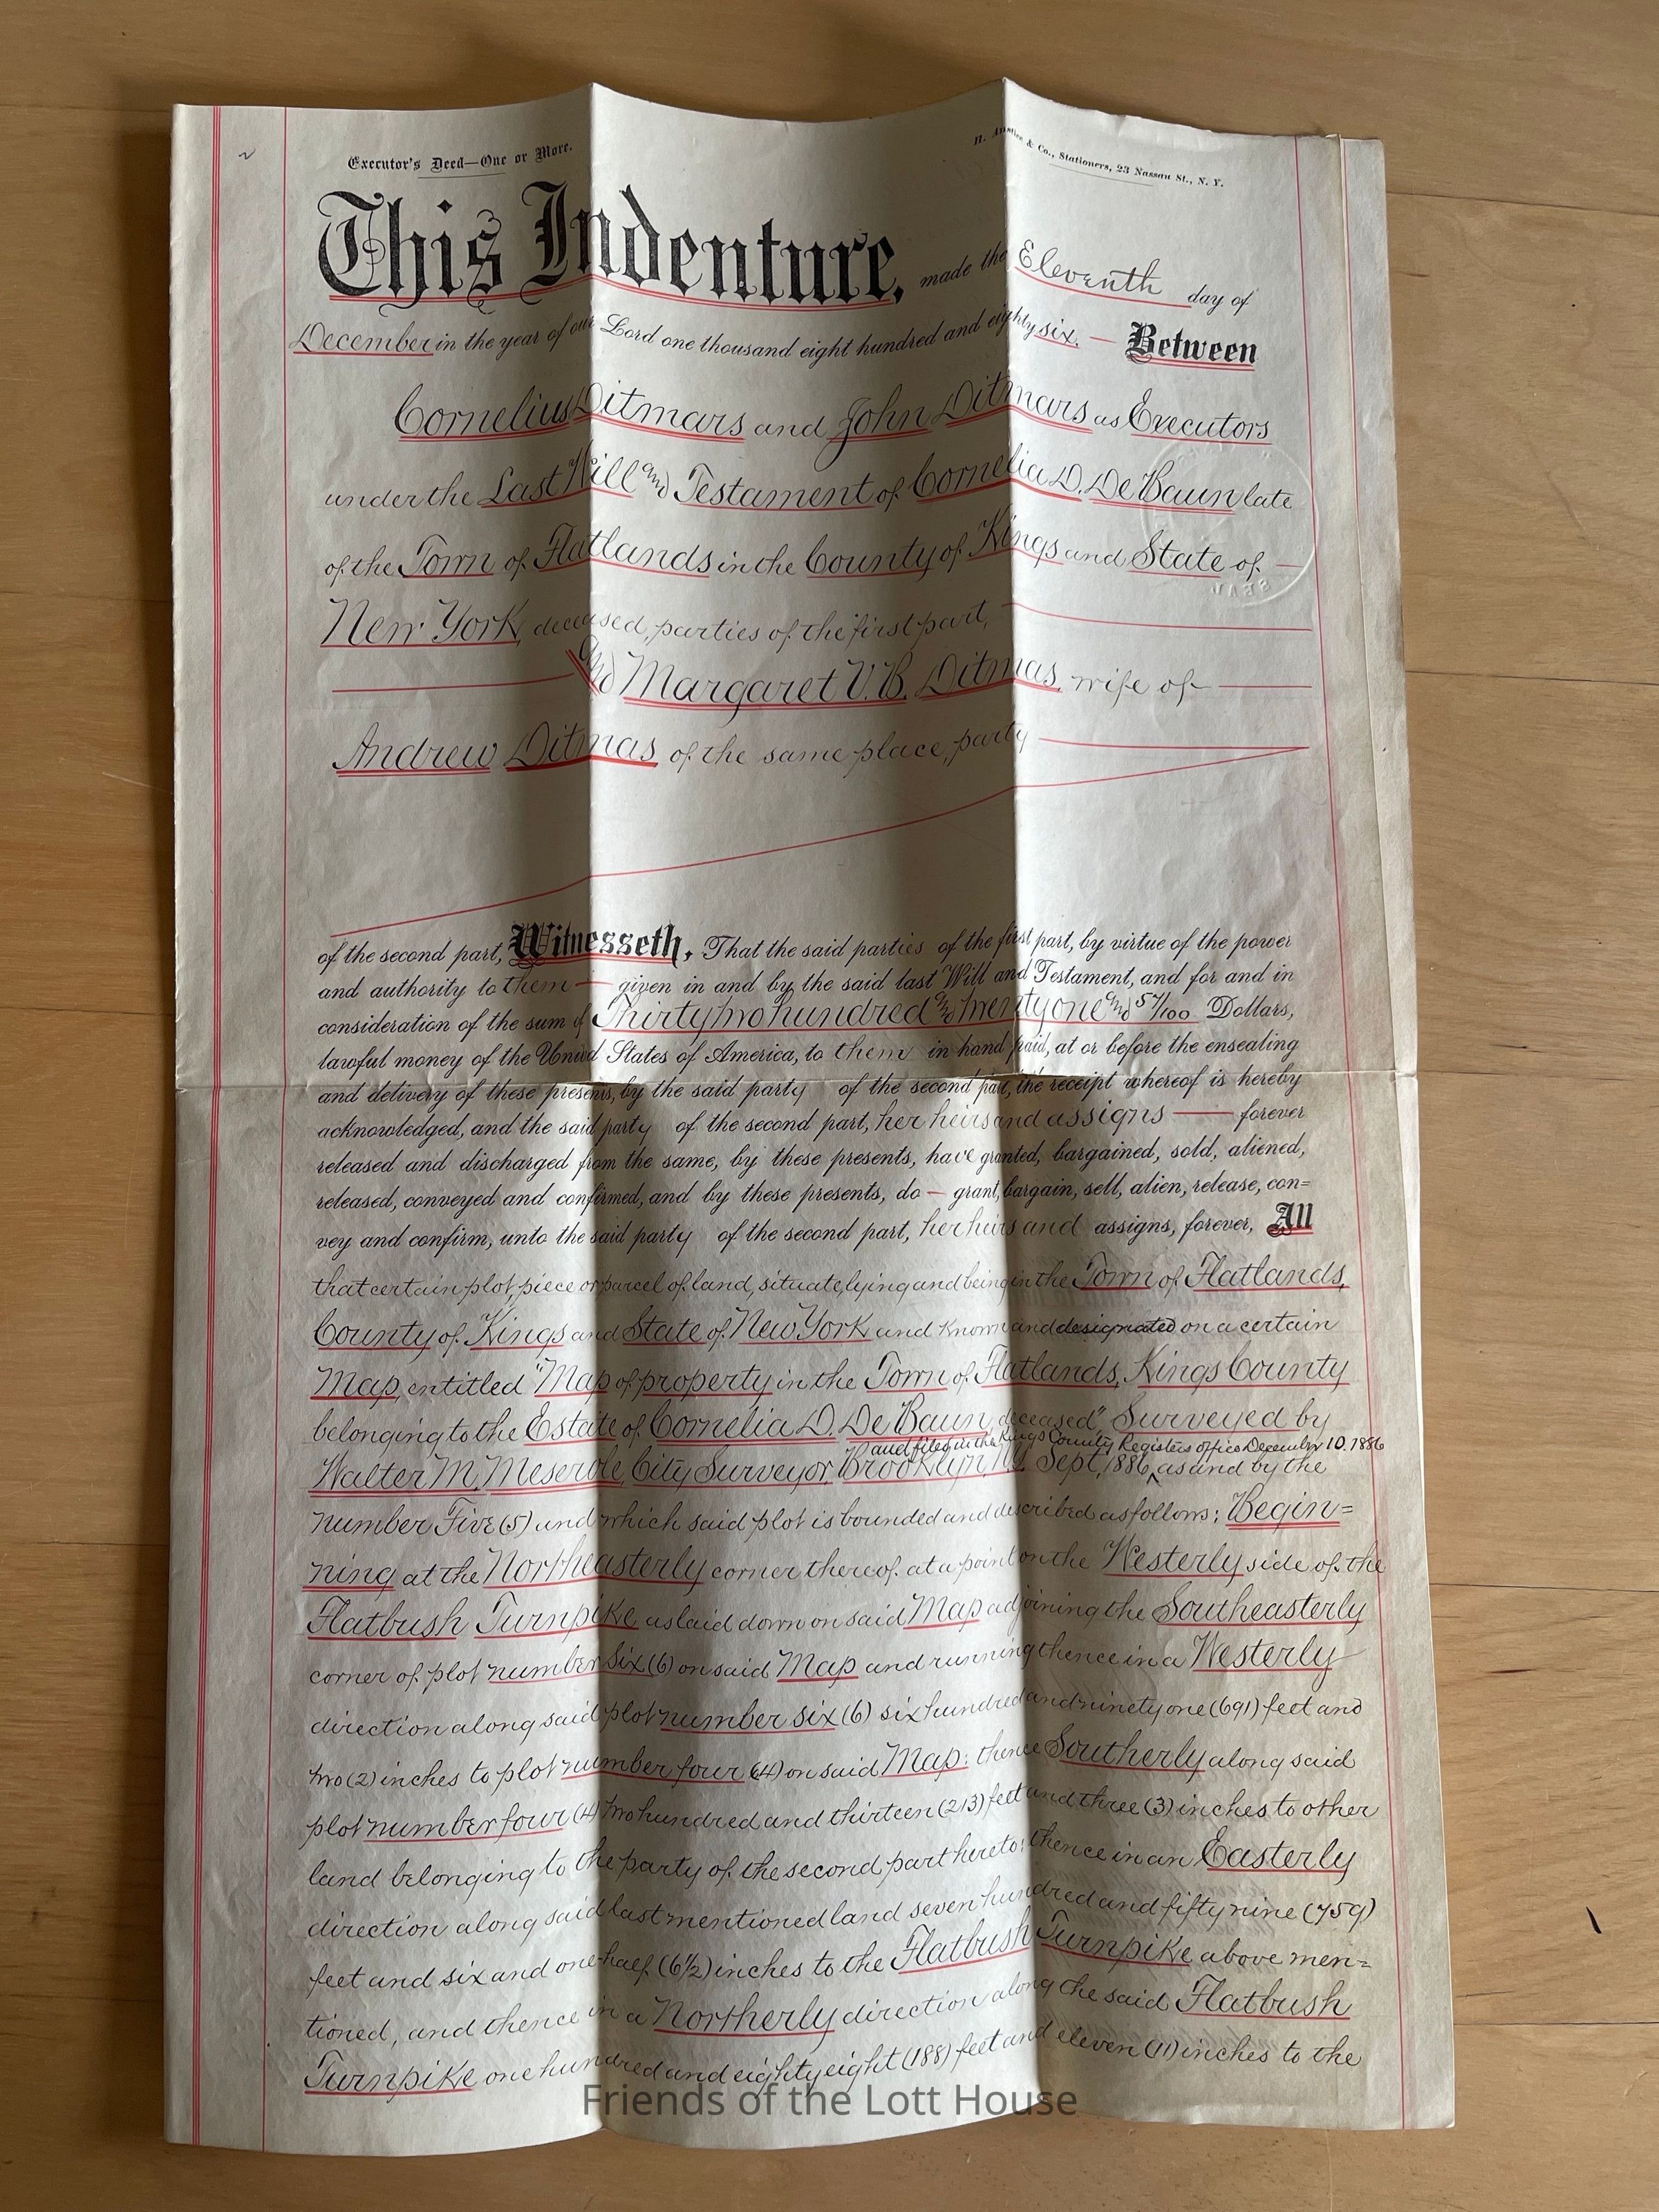 Executor's Deed—One or More.
& Co., Stationers, 23 Nassau St., N. Y.
This Indenture, made the Eleventh day of
December in the year of our Lord one thousand eight hundred and eighty six, — Between
Cornelius Ditmars and John Ditmars as Executors
under the Last Will and Testament of Cornelia D. De Baun late
of the Town of Flatlands in the County of Kings and State of —
New York, deceased, parties of the first part,
and Margaret V. B. Ditmas, wife of —
Andrew Ditmas of the same place, party
of the second part, Witnesseth, That the said parties of the first part, by virtue of the power
and authority to them — given in and by the said last Will and Testament, and for and in
consideration of the sum of Thirty two hundred and twenty one and 57/100 Dollars,
lawful money of the United States of America, to them in hand paid, at or before the ensealing
and delivery of these presents, by the said party of the second part, the receipt whereof is hereby
acknowledged, and the said party of the second part, her heirs and assigns — forever
released and discharged from the same, by these presents, have granted, bargained, sold, aliened,
released, conveyed and confirmed, and by these presents, do — grant, bargain, sell, alien, release, con=
vey and confirm, unto the said party of the second part, her heirs and assigns, forever, All
that certain plot, piece or parcel of land, situate, lying and being in the Town of Flatlands,
County of Kings and State of New York and known and designated on a certain
Map, entitled "Map of property in the Town of Flatlands, Kings County
belonging to the Estate of Cornelia D. De Baun, deceased" Surveyed by
and filed in the Kings County Registers office December 10. 1886
Walter M. Meserole, City Surveyor, Brooklyn, N.Y. Sept, 1886, ^ as and by the
number Five (5) and which said plot is bounded and described as follows; Begin=
ning at the Northeasterly corner thereof at a point on the Westerly side of the
Flatbush Turnpike as laid down on said Map adjoining the Southeasterly
corner of plot number six (6) on said Map and running thence in a Westerly
direction along said plot number six (6) six hundred and ninety one (691) feet and
two (2) inches to plot number four (4) on said Map; thence Southerly along said
plot number four (4) two hundred and thirteen (213) feet and three (3) inches to other
land belonging to the party of the second part hereto; thence in an Easterly
direction along said last mentioned land seven hundred and fifty nine (759)
feet and six and one-half (6½) inches to the Flatbush Turnpike above men=
tioned, and thence in a Northerly direction along the said Flatbush
Turnpike one hundred and eighty eight (188) feet and eleven (11) inches to the
Friends of the Lott House